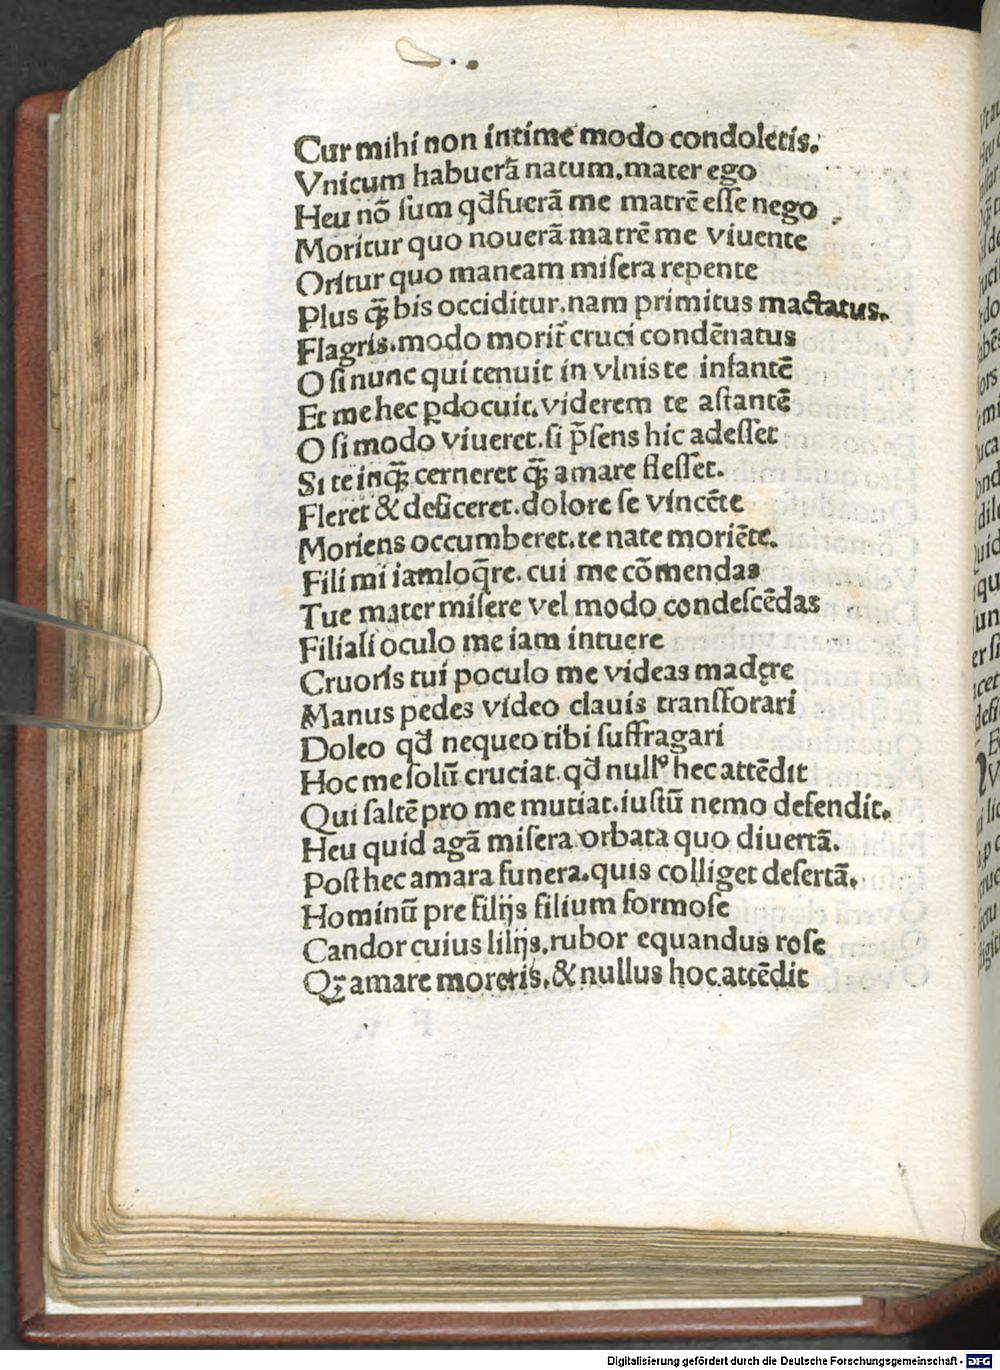 Cur mihi non intime modo condoletis.
Vnicum habuerā natum.mater ego
Heu nō sum qđ fuerā me matrē esse nego
Moritur quo nouerā matrē me viuente
Oritur quo maneam misera repente
Plus q̄ꝫ bis occiditur.nam primitus mactatus.
Flagris.modo morit᷑ cruci condēnatus
O si nunc qui tenuit in vlnis te infantē
Et me hec ꝑdocuit.viderem te astantē
O si modo viueret.si p̄sens hic adesset
Si te inq̄ꝫ cerneret q̄ꝫ amare flesset.
Fleret & deficeret.dolore se vincēte
Moriens occumberet.te nate moriēte.
Fili mi iamloq̄re.cui me cōmendas
Tue mater misere vel modo condescēdas
Filiali oculo me iam intuere
Cruoris tui poculo me videas madęre
Manus pedes video clauis transforari
Doleo qđ nequeo tibi suffragari
Hoc me solū cruciat.qđ nullꝰ hec attēdit
Qui saltē pro me mutiat.iustū nemo defendit.
Heu quid agā misera orbata quo diuertā.
Post hec amara funera.quis colliget desertā.
Hominū pre filijs filium formose
Candor cuius lilijs.rubor equandus rose
Qꝫ amare moreris.& nullus hoc attēdit
Digitalisierung gefördert durch die Deutsche Forschungsgemeinschaft - DFG